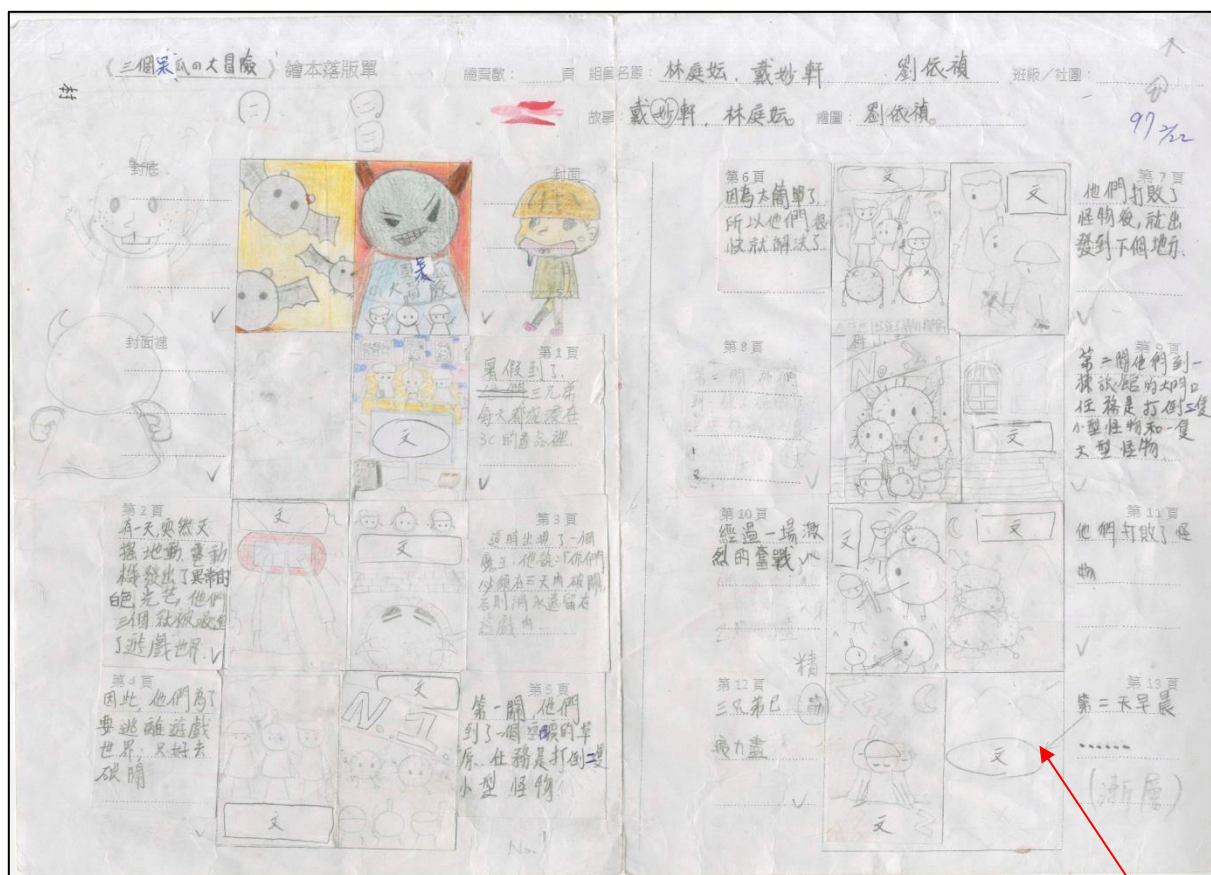 《三個呆瓜の大冒險》繪本落版單
總頁數：　頁　組員名單：林庭妘、戴妙軒　劉依禎　班級／社團：
故事：戴妙軒、林庭妘。　繪圖：劉依禎。
97 2/22
封底
封面
呆
大冒險
封面裡
第1頁
暑假到了,
三兄弟
每天都沉浸在
3C的產品裡
文
第2頁
有一天突然天
搖地動電動
機發出了異常的
白色光芒,他們
三個就被吸進
了遊戲世界.
文
文
第3頁
這時出現了一個
魔王,他說:「你們
必須在三天內破關,
否則將永遠留在
遊戲內.
第4頁
因此,他們為了
要逃離遊戲
世界,只好去
破關
文
文
N.1
第5頁
第一關,他們
到了一個空曠的草
原.任務是打倒二隻
小型怪物
No.1
第6頁
因為太簡單了
所以他們很
快就解決了
文
文
第7頁
他們打敗了
怪物後,就出
發到下個地方.
第8頁
第二關他們
No.2
文
第二關他們到一
棟旅館的大門口
任務是打倒二隻
小型怪物和一隻
大型怪物.
第10頁
經過一場激
烈的奮戰
文
文
第11頁
他們打敗了怪
物
第12頁
精
三兄弟已
疲力盡
文
文
第13頁
第二天早晨
……
(漸層)